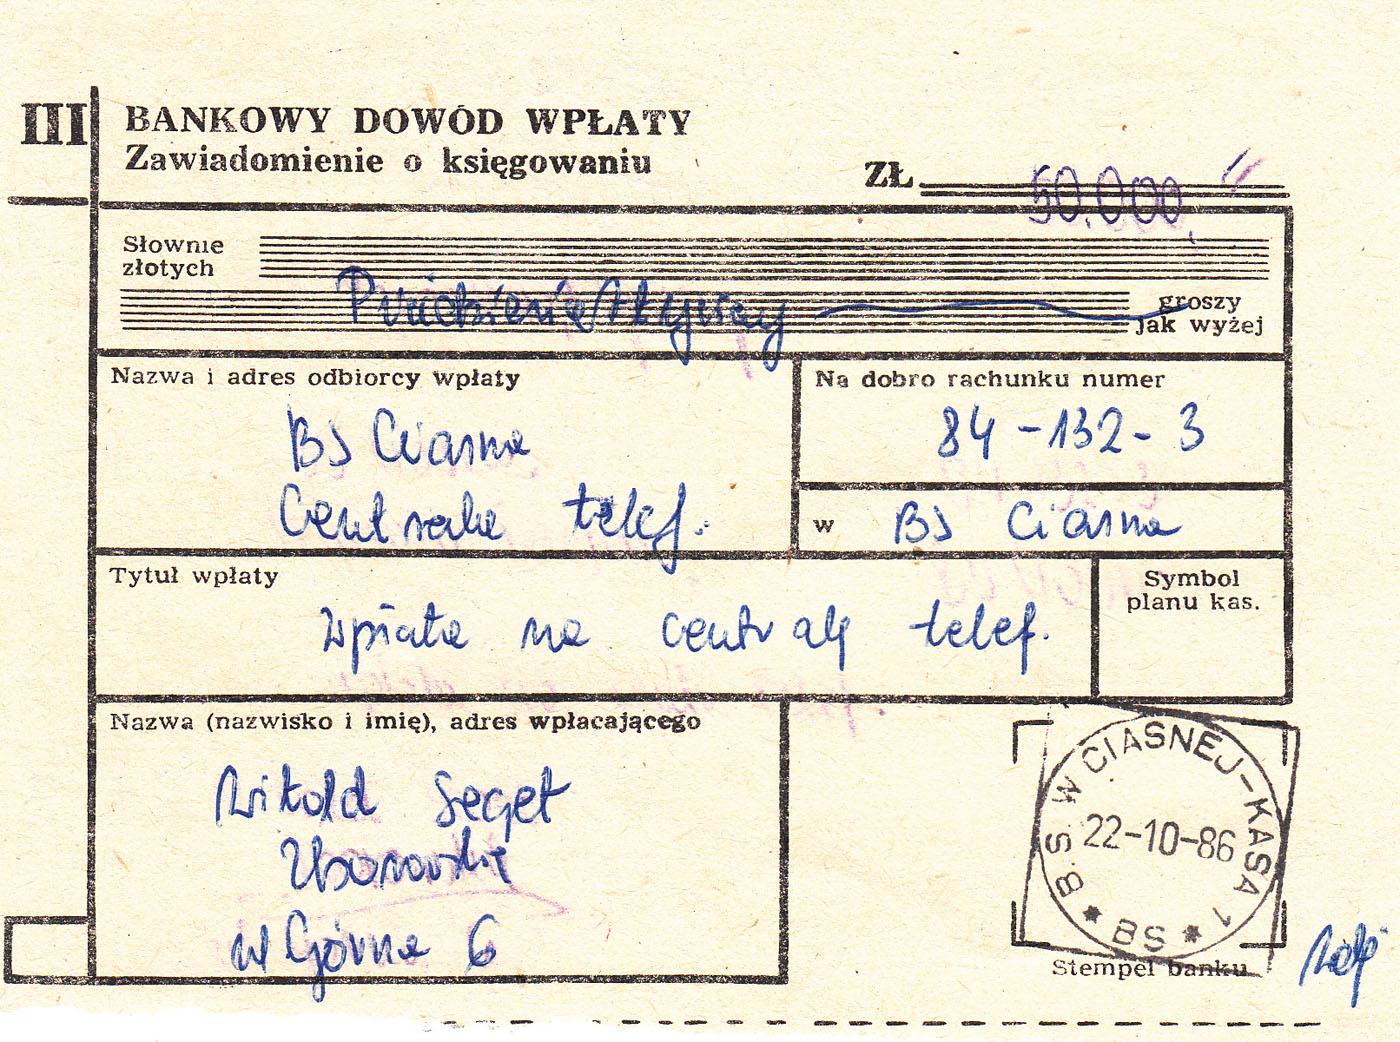 III
BANKOWY DOWÓD WPŁATY
Zawiadomienie o księgowaniu
ZŁ 50.000,
Słownie
złotych
groszy
jak wyżej
Nazwa i adres odbiorcy wpłaty
BS Ciasna
Centrala telef.
Na dobro rachunku numer
84-132-3
w BS Ciasna
Tytuł wpłaty
wpłata na centralę telef.
Symbol
planu kas.
Nazwa (nazwisko i imię), adres wpłacającego
Witold Seget
Zborowskie
ul Górna 6
B.S W CIASNEJ-KASA 1
22-10-86
* BS *
Stempel banku